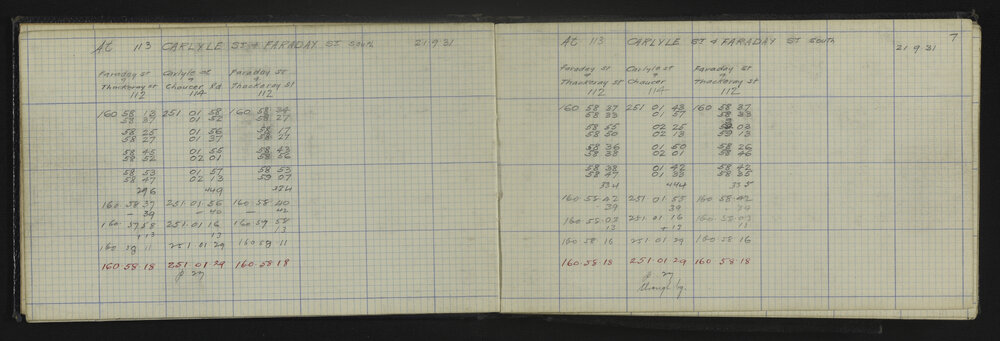 At 113 CARLYLE ST & FARADAY ST SOUTH 21.9.31
Faraday st Carlyle st Faraday st
& & &
Thackeray st Chaucer Rd Thackeray st
112 114 112
160 58 13 251 01 58 160 58 34
58 37 01 52 58 27
58 25 01 56 58 17
58 27 01 37 58 21
58 45 01 55 58 43
58 52 02 01 58 56
58 53 01 57 58 53
58 47 02 13 59 07
296 449 334
160 58 37 251.01.56 160.58.40
- 39 - 40 - 42
251.01.16
+13 13 13
160 59 11 251 01 29 160 59.11
160.58.18 251.01.29 160.58.18
At 113 CARLYLE ST & FARADAY ST SOUTH 21 9 31 7
Faraday st Carlyle st Faraday st
& & &
Thackeray st Chaucer Thackeray st
112 114 112
160 58 37 251 01 43 160 58 37
58 33 01 57 58 33
58 55 02 25 03
58 50 02 13 59 13
58 36 01 50 58 26
58 38 02 01 58 46
58 38 01 42 58 42
58 47 01 33 58 35
334 444 335
160.58.42 251.01.55 160.58.42
39 39 39
160.58.03 251.01 16 160.58.03
13 +13 11
160 58 16 251 01 29 160 58 16
160.58.18 251.01.29 160.58.18